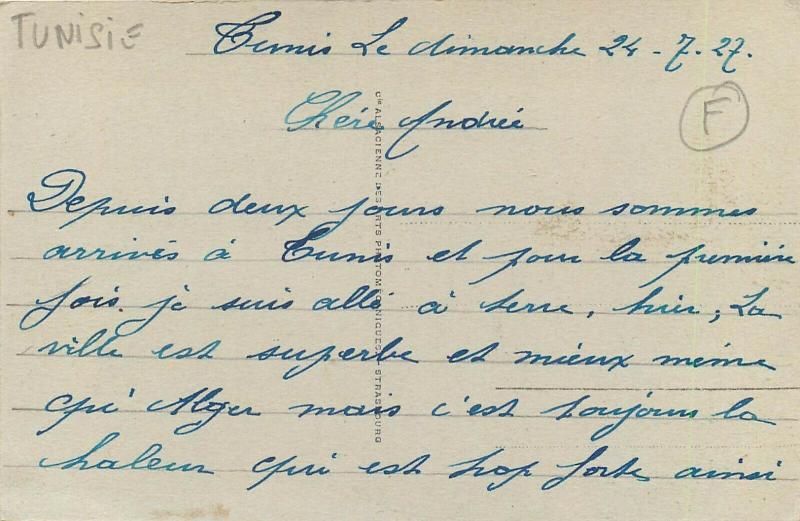 TUNISIE
Tunis Le dimanche 24-7.27.
F
Chère Andrée
Depuis deux jours nous sommes
arrivés à Tunis et pour la première
fois je suis allé à terre, hier, La
ville est superbe et mieux même
qu'Alger mais c'est toujours la
chaleur qui est trop forte ainsi
Cie ALSACIENNE DES ARTS PHOTOMÉCANIQUES STRASBOURG